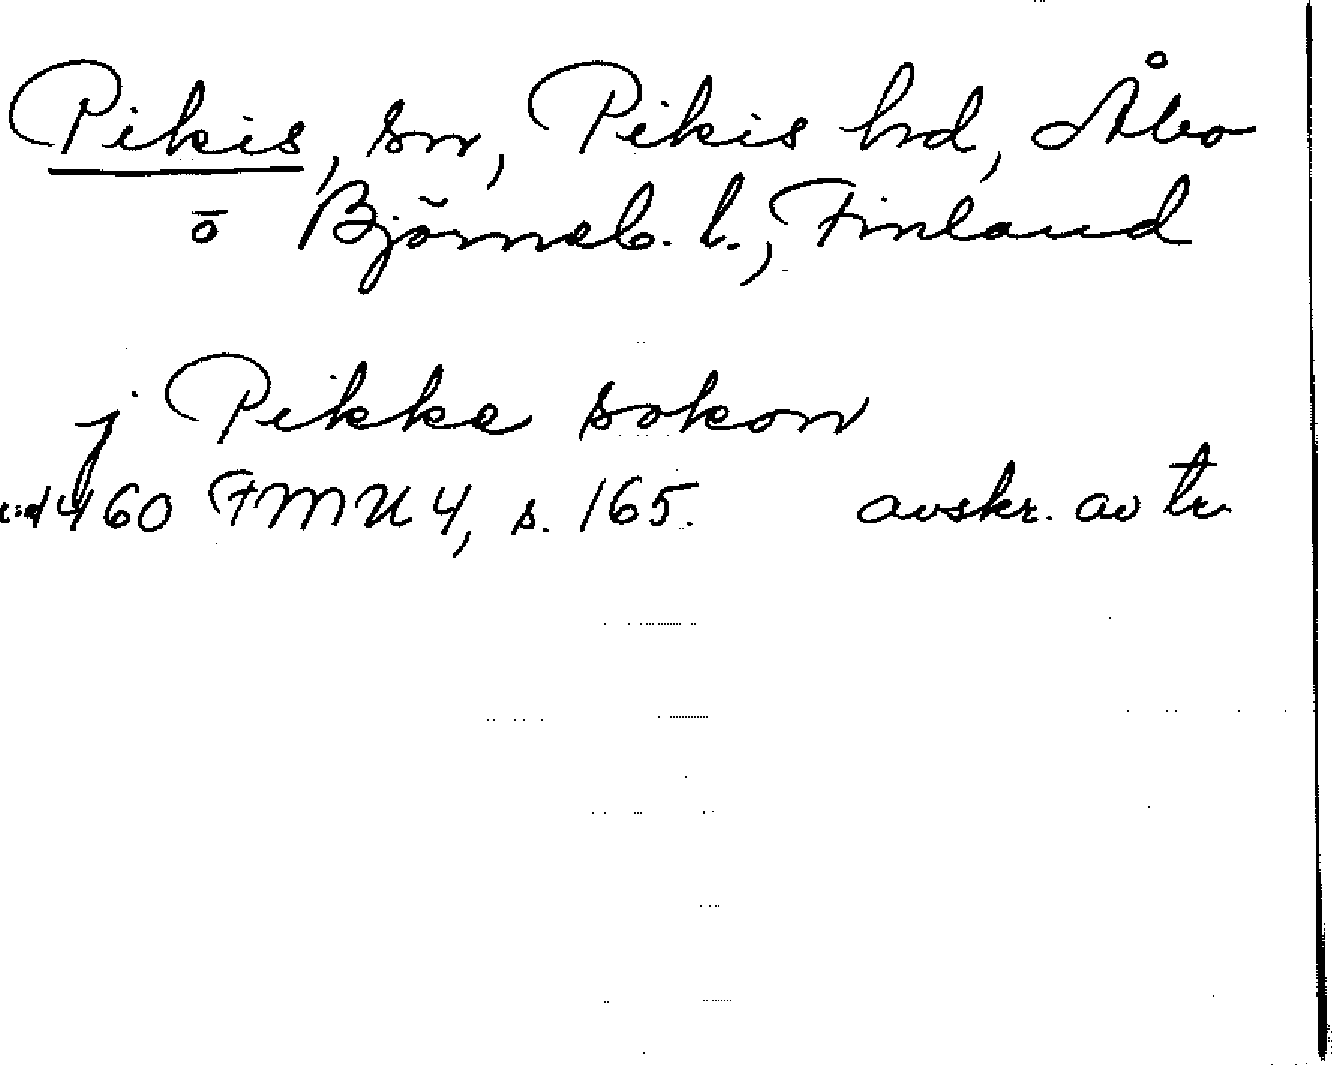 Pikis, sn, Pikis hrd, Åbo
o Björneb. l., Finland
j Pikke sokon
1460 FMU 4, s. 165. avskr. av tr.